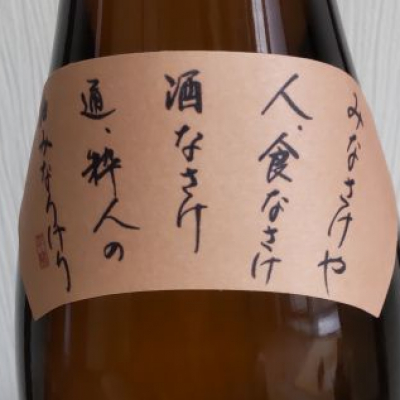 みなさけや
人、食なさけ
酒なさけ
通、粋人の
みなりけり